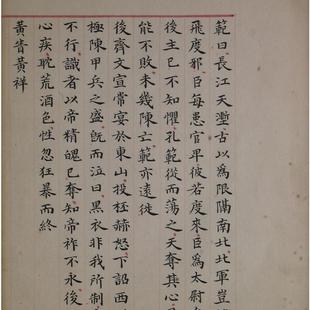 範曰長江天塹古以為限隔南北北軍豈
飛度邪臣每患官卑彼若度來臣為太尉
後主已不知懼孔範從而蕩之天奪其心
能不敗未幾陳亡範亦遠徙
後齊文宣常宴於東山投杯赫怒下詔西
極陳甲兵之盛既而泣曰黑衣非我所制
不行識者以帝精魄已奪知帝祚不永後
心疾耽荒酒色性忽狂暴而終
黃眚黃祥